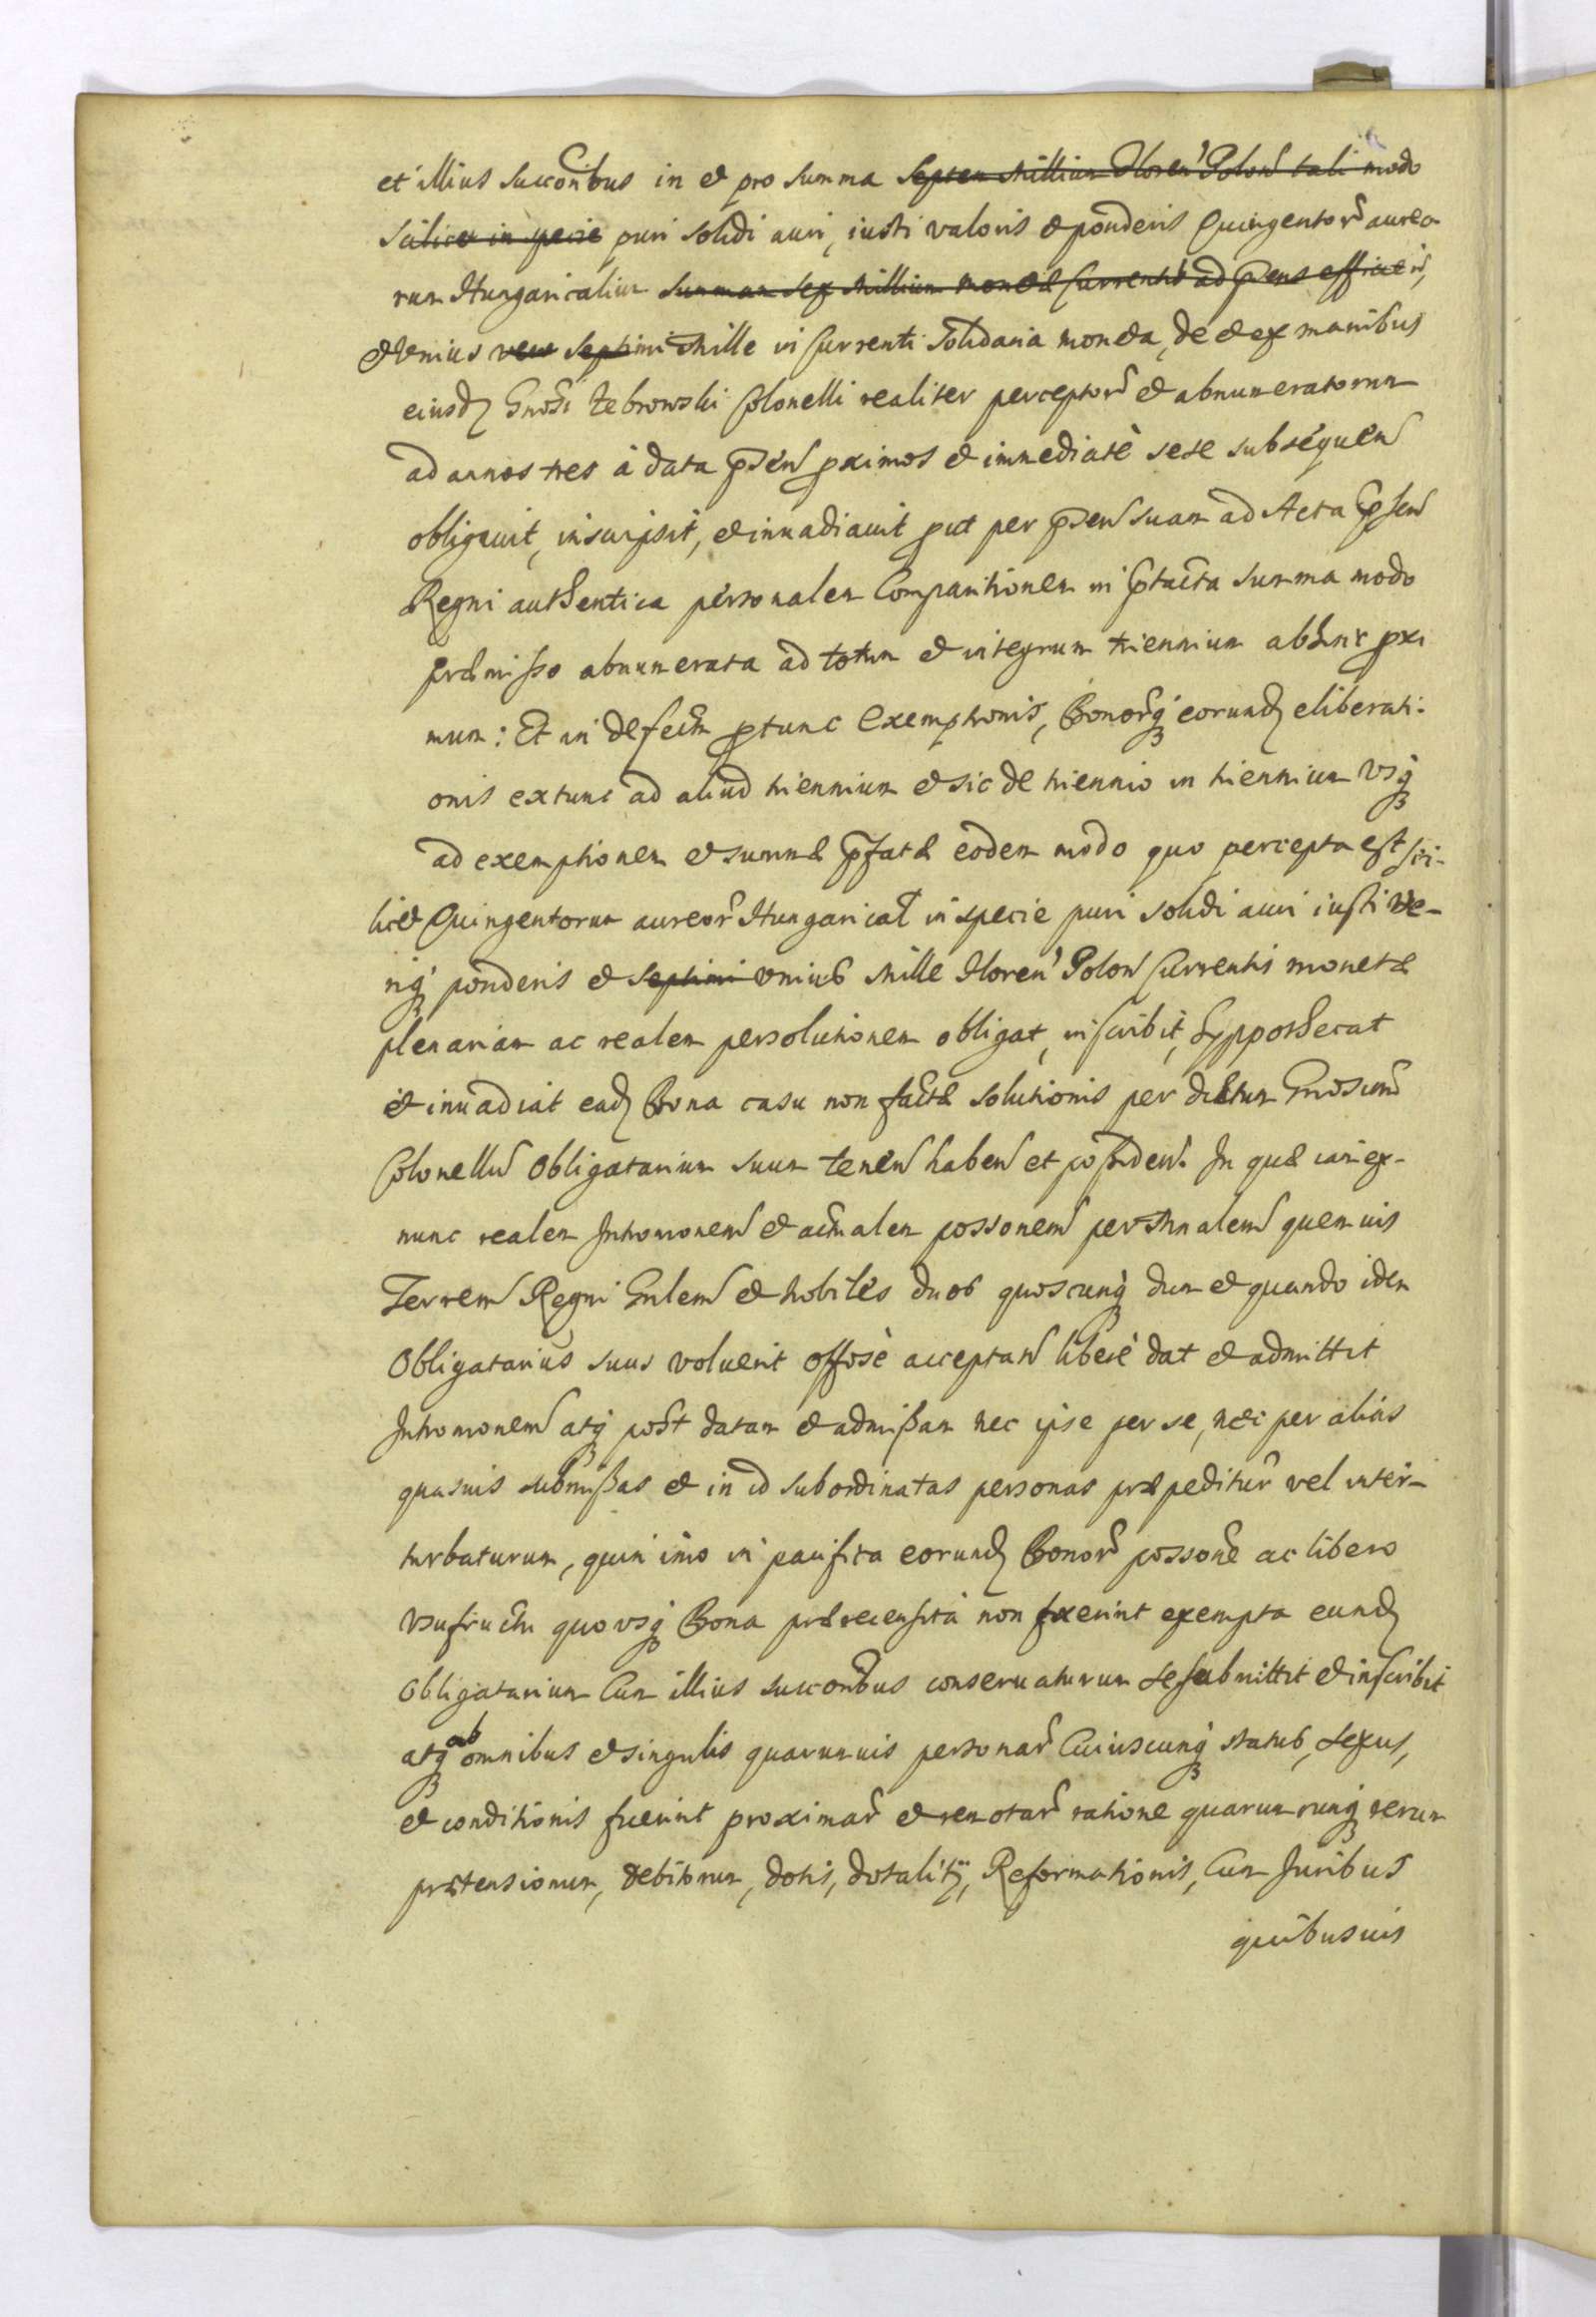 et illius succoribus in et pro summa septem millium Floren Polon tali modo
scilicet in specie puri solidi auri, iusti valoris et ponderis Quingentor aureo-
rum Hungaricalium summam sex millium monetæ currentis ad præns efficien,
et Unius vero septimi Mille in currenti solidaria moneta, de et ex manibus
eiusd Gnosi Zebrowski Colonelli realiter perceptor et abnumeratorum
ad annos tres à data præsen pximos et immediatè sese subsequen
obligavit, inscripsit, et invadiavit put per præsen suam ad Acta præsen
Regni authentica personalem Comparitionem in ptacta summa modo
præmisso abnumerata ad totum et integrum triennium abhinc pxi
mum: Et in defectm ptunc Exemptionis, Bonorq eorund eliberati-
onis extunc ad aliud triennium et sic de triennio in triennium Vsq
ad exemptionem et summæ præfatæ eodem modo quo percepta est sci-
licet Quingentorum aureor Hungarical in specie puri solidi auri iusti ve-
riq ponderis et septimi Unius Mille Floren Polon Currentis monetæ
plenariam ac realem persolutionem obligat, inscribit, hyppothecat
et invadiat ead Bona casu non factæ solutionis per dictum Gnosum
Colonellu Obligatarium suum tenen haben et possiden. In quæ iam ex-
nunc realem Intromonem et actualem possonem per Mnalem quemvis
Terrem Regni Gnlem et Nobiles duos quoscunq dum et quando idem
Obligatarius suus voluerit offosè acceptan liberè dat et admittit
Intromonem atq post datam et admissam nec ipse per se, nec per alias
quasvis submissas et in id subordinatas personas præpeditur vel inter-
turbaturum, quin imo in pacifica eorund Bonor possone ac libero
Vsufructu quovsq Bona præerecensita non fuerint exempta eund
Obligatarium Cum illius succoribus conservaturum se submittit et inscribit
atq ab omnibus et singulis quarumvis personar Cuiuscunq status, sexus,
et conditionis fuerint proximar et remotar ratione quarumcunq rerum
prætensionum, debitorum, dotis, dotalitij, Reformationis, Cum Juribus
quibusvis